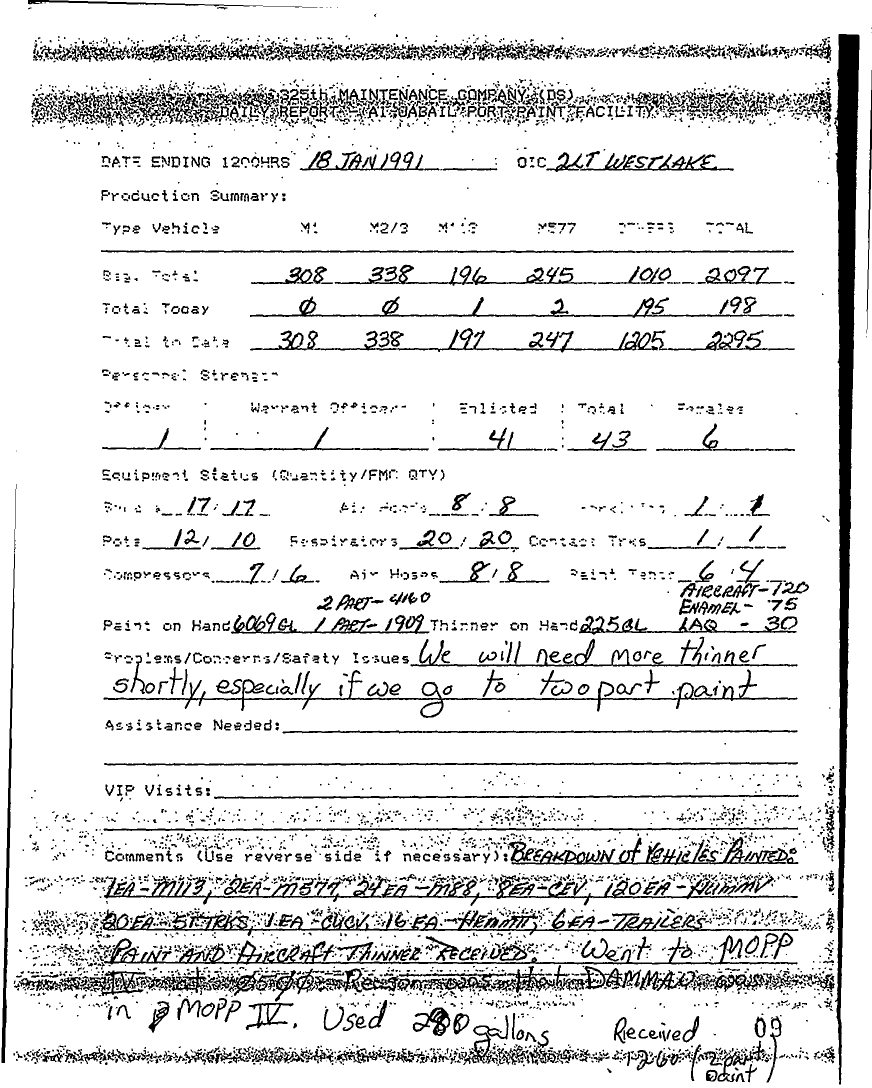 325th MAINTENANCE COMPANY (DS)
DAILY REPORT - Al JABAIL PORT PAINT FACILITY
DATE ENDING 1200HRS 18 JAN 1991 : OIC 2LT WESTLAKE
Production Summary:
Type Vehicle M1 M2/3 M113 M577 OTHERS TOTAL
Beg. Total 308 338 196 245 1010 2097
Total Today Ø Ø 1 2 195 198
Total to Date 308 338 197 247 1205 2295
Personnel Strength
Officer Warrant Officers Enlisted Total Females
1 1 41 43 6
Equipment Status (Quantity/FMC QTY)
17/17 Air Hoods 8/8 1/1
Pots 12/10 Respirators 20/20 Contact Trks 1/1
Compressors 7/6 Air Hoses 8/8 Paint Tents 6/4
2 PART-4160 AIRCRAFT-120
ENAMEL- 75
Paint on Hand 6069GL 1 PART-1909 Thinner on Hand 225GL LAQ - 30
Problems/Concerns/Safety Issues We will need more thinner
shortly, especially if we go to two part paint
Assistance Needed:
VIP Visits:
Comments (Use reverse side if necessary): BREAKDOWN of VEHICLES PAINTED:
1EA-M113, 2EA-M577, 24EA-M88, 8EA-CEV, 120EA-HUMMV
20EA-5T TRKS, 1EA-CUCV, 16EA-HEMTT, 6EA-TRAILERS
PAINT AND AIRCRAFT THINNER RECEIVED. Went to MOPP
IV at Reason was that DAMMAO was
in MOPP IV. Used 280 gallons Received 09
1260 (2 part
paint)